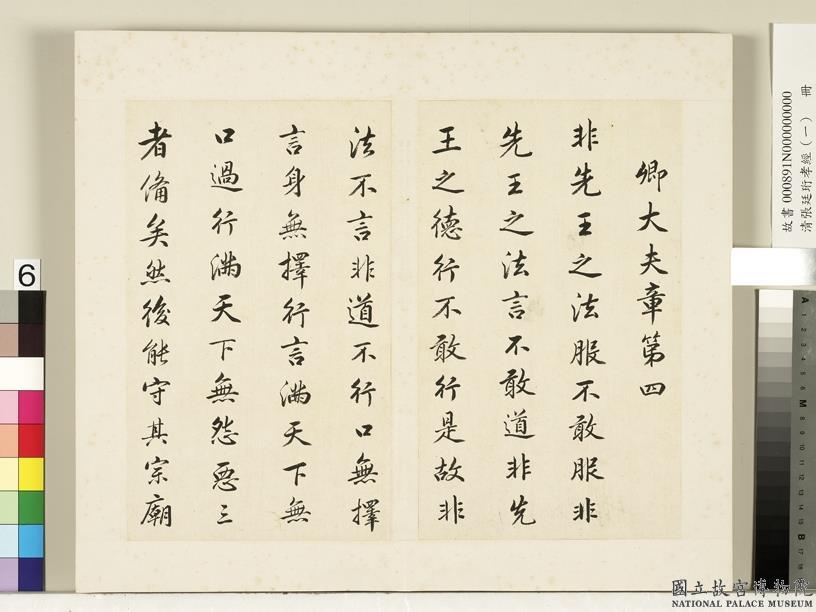 卿大夫章第四
非先王之法服不敢服非
先王之法言不敢道非先
王之德行不敢行是故非
法不言非道不行口無擇
言身無擇行言滿天下無
口過行滿天下無怨惡三
者備矣然後能守其宗廟
故書 000891N000000000
清張廷珩孝經（一） 冊
6
A 1 2 3 4 5 6 M 8 9 10 11 12 13 14 15 B 17 18
國立故宮博物院
NATIONAL PALACE MUSEUM